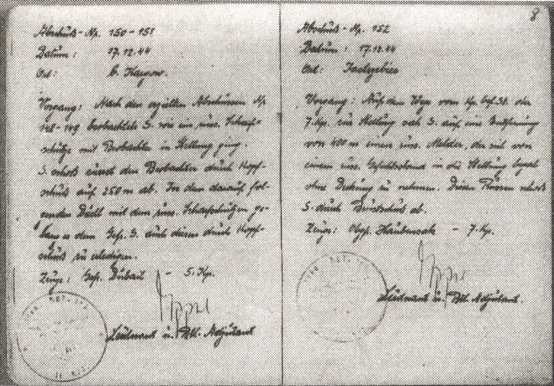 Abschuß-Np. 150-151
Datum: 17.12.44
Ort: b. Kaysow.
Vorgang: Nach den erzielten Abschüssen Np.
148-149 beobachtete S. wie ein russ. Scharf-
schütze mit Beobachter in Stellung ging.
S. schoß zuerst den Beobachter durch Kopf-
schuß auf 250 m ab. In dem darauf fol-
genden Duell mit dem russ. Scharfschützen ge-
lang es dem Gef. S. auch diesen durch Kopf-
schuß zu erledigen.
Zeuge: Gef. - 5. Kp.
Leutnant u. Btl. Adjutant
8
Abschuß-Np. 152
Datum: 17.12.44
Ort:
Vorgang: Auf dem Weg vom Kp. Gef. St. der
7. Kp. in Stellung sah S. auf eine Entfernung
von 400 m einen russ. Melder, der sich von
einem russ. Gefechtsstand in die Stellung begab
ohne Deckung zu nehmen. Diesen Russen schoß
S. durch Brustschuß ab.
Zeuge: - 7. Kp.
Leutnant u. Btl. Adjutant.